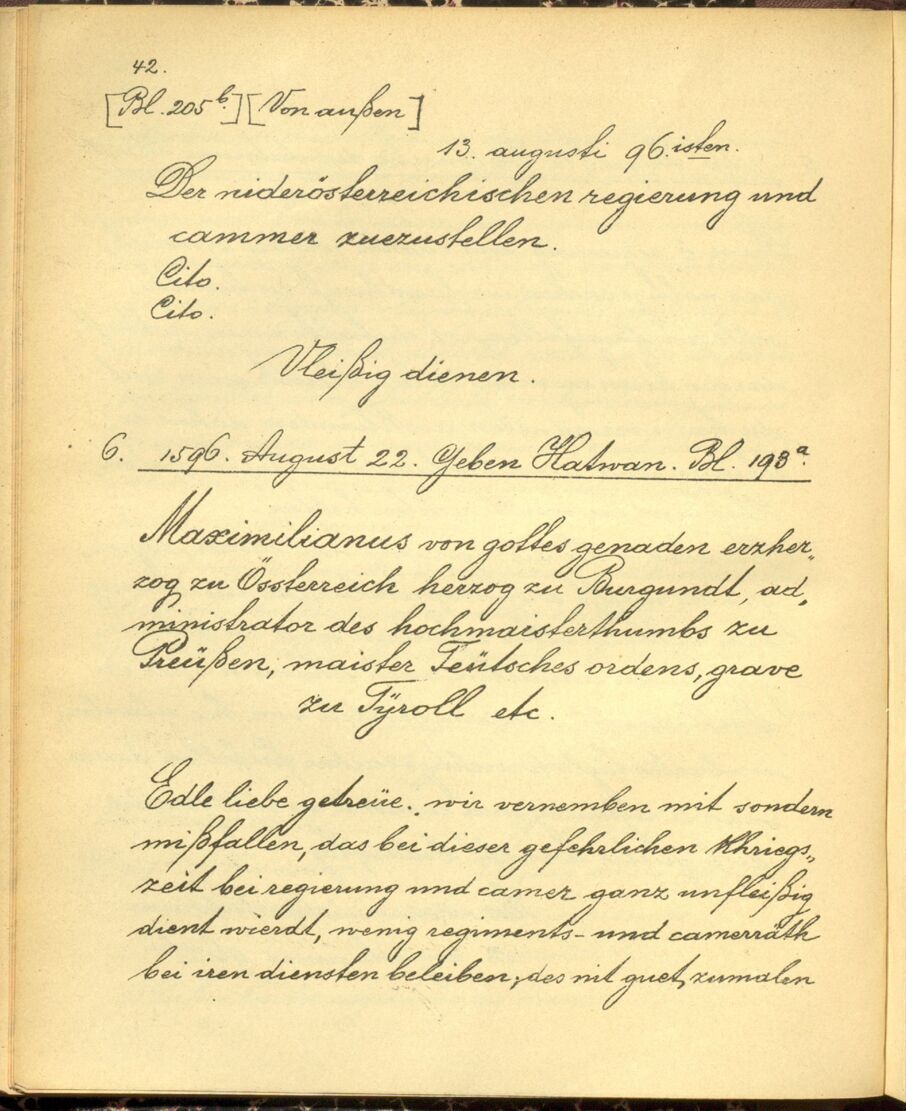 42.
[Bl. 205b.] [Von außen]
13. augusti 96.isten.
Der niderösterreichischen regierung und
cammer zuezustellen.
Cito.
Cito.
Vleißig dienen.
6. 1596. August 22. Geben Hatwan. Bl. 193a.
Maximilianus von gottes genaden erzher„
zog zu Össterreich herzog zu Burgundt, ad„
ministrator des hochmaisterthumbs zu
Preüßen, maister Teütsches ordens, grave
zu Tÿroll etc.
Edle liebe getreüe. wir vernemben mit sondern
mißfallen, das bei dieser gefehrlichen khriegs„
zeit bei regierung und camer ganz unfleißig
dient wierdt, wenig regiments- und camerräth
bei iren diensten beleiben, des nit guet, zumalen